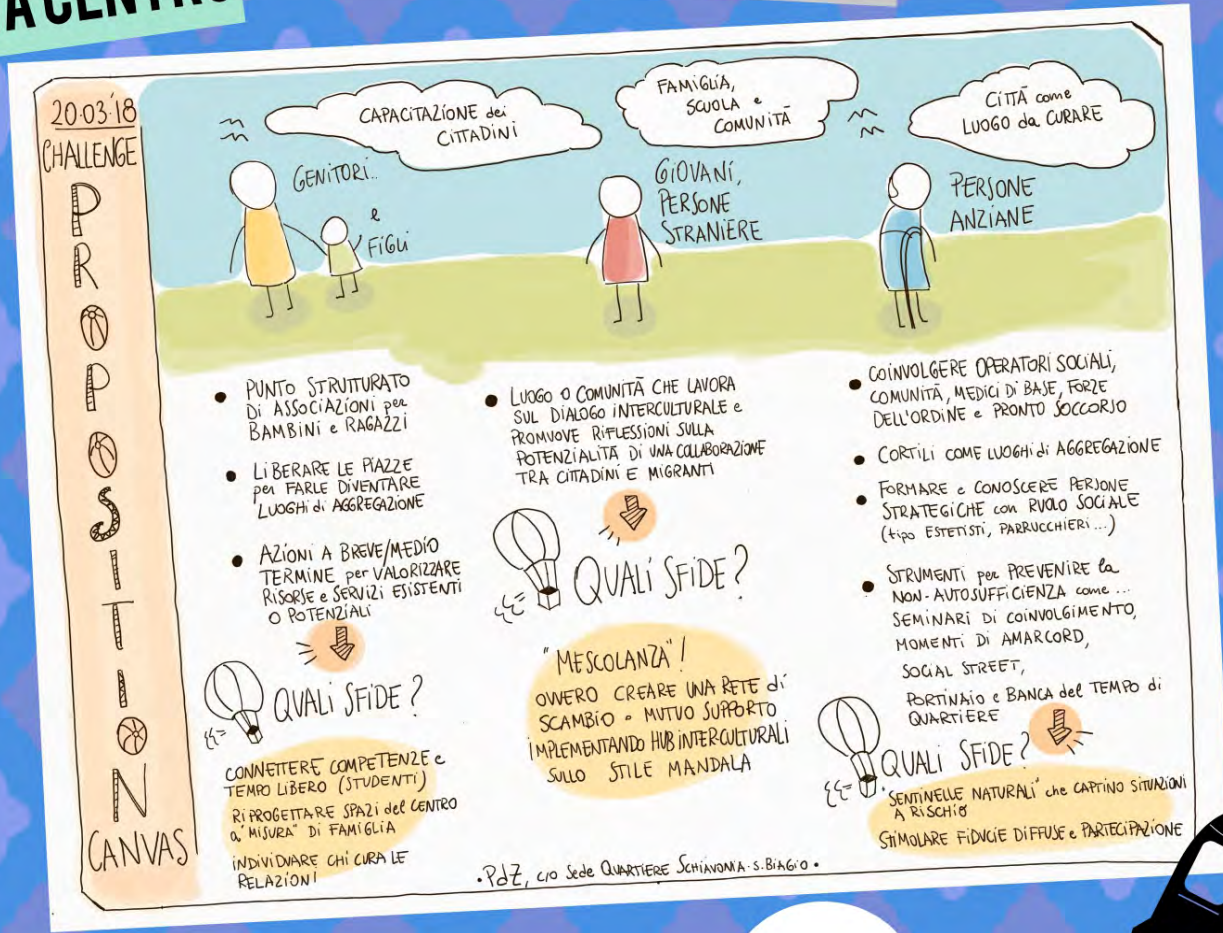 A CENTRO
20.03.'18
CHALLENGE
PROPOSITION
CANVAS
CAPACITAZIONE dei
CITTADINI
FAMIGLIA,
SCUOLA e
COMUNITÀ
CITTÀ come
LUOGO da CURARE
GENITORI..
e
FIGLI
GIOVANI,
PERSONE
STRANIERE
PERSONE
ANZIANE
• PUNTO STRUTTURATO
DI ASSOCIAZIONI per
BAMBINI e RAGAZZI
• LIBERARE LE PIAZZE
per FARLE DIVENTARE
LUOGHI di AGGREGAZIONE
• AZIONI A BREVE/MEDIO
TERMINE per VALORIZZARE
RISORSE e SERVIZI ESISTENTI
O POTENZIALI
QUALI SFIDE?
CONNETTERE COMPETENZE e
TEMPO LIBERO (STUDENTI)
RIPROGETTARE SPAZI del CENTRO
a "MISURA" DI FAMIGLIA
INDIVIDUARE CHI CURA LE
RELAZIONI
• LUOGO O COMUNITÀ CHE LAVORA
SUL DIALOGO INTERCULTURALE e
PROMUOVE RIFLESSIONI SULLA
POTENZIALITÀ DI UNA COLLABORAZIONE
TRA CITTADINI E MIGRANTI
QUALI SFIDE?
"MESCOLANZA"!
OVVERO CREARE UNA RETE di
SCAMBIO e MUTUO SUPPORTO
IMPLEMENTANDO HUB INTERCULTURALI
SULLO STILE MANDALA
• COINVOLGERE OPERATORI SOCIALI,
COMUNITÀ, MEDICI DI BASE, FORZE
DELL'ORDINE e PRONTO SOCCORSO
• CORTILI COME LUOGHI di AGGREGAZIONE
• FORMARE e CONOSCERE PERSONE
STRATEGICHE con RUOLO SOCIALE
(tipo ESTETISTI, PARRUCCHIERI...)
• STRUMENTI per PREVENIRE la
NON-AUTOSUFFICIENZA come ...
SEMINARI DI COINVOLGIMENTO,
MOMENTI DI AMARCORD,
SOCIAL STREET,
PORTINAIO e BANCA del TEMPO di
QUARTIERE
QUALI SFIDE?
"SENTINELLE NATURALI" che CAPTINO SITUAZIONI
A RISCHIO
STIMOLARE FIDUCIE DIFFUSE e PARTECIPAZIONE
• PdZ, c/o Sede QUARTIERE SCHIAVONIA-S.BIAGIO •